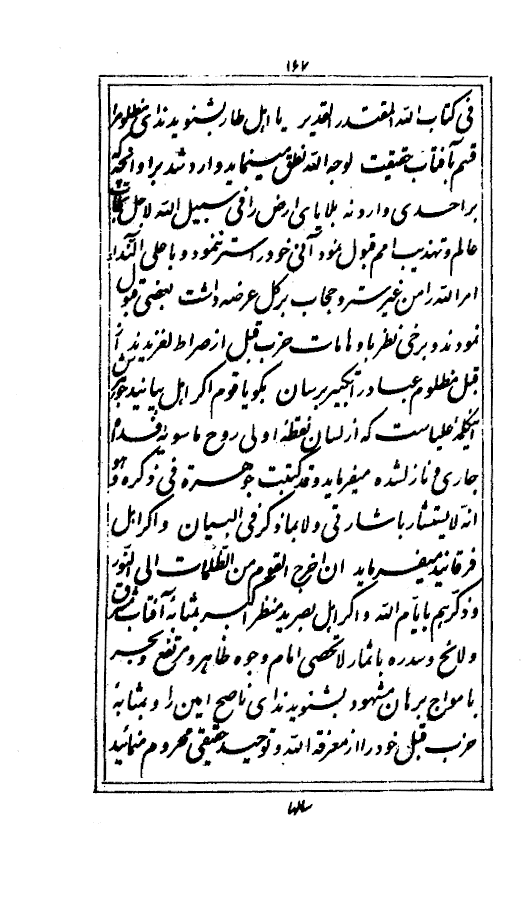 ١٦٧
فی کتاب الله المقتدر القدیر یا اهل طار بشنوید ندای مظلوم را
قسم بآفتاب حقیقت لوجه الله نطق مینماید وارد شد بر او آنچه که
بر احدی وارد نه بلایای ارض را فی سبیل الله لاجل نجات
عالم و تهذیب امم قبول نمود آنی خود را ستر ننمود و باعلی النداء
امر الله را من غیر ستر و حجاب بر کل عرضه داشت بعضی قبول
نمودند و برخی نظر باوهامات حزب قبل از صراط لغزیدند از
قبل مظلوم عباد را تکبیر برسان بگو یا قوم اگر اهل بیانید
اینکلمه علیاست که از لسان نقطه اولی روح ما سویه فداه
جاری و نازل شده میفرماید و قد کتبت جوهرة فی ذکره و هو
انه لا یستشار باشارتی و لا بما ذکر فی البیان و اگر اهل
فرقانید میفرماید ان اخرج القوم من الظلمات الی النور
و ذکرهم بایام الله و اگر اهل بصرید منظر اکبر بمثابه آفتاب مشرق
و لائح و سدره باثمار لا تحصی امام وجوه ظاهر و مرتفع و بحر
بامواج برهان مشهود بشنوید ندای ناصح امین را و بمثابه
حزب قبل خود را از معرفة الله و توحید حقیقی محروم منمائید
سالها